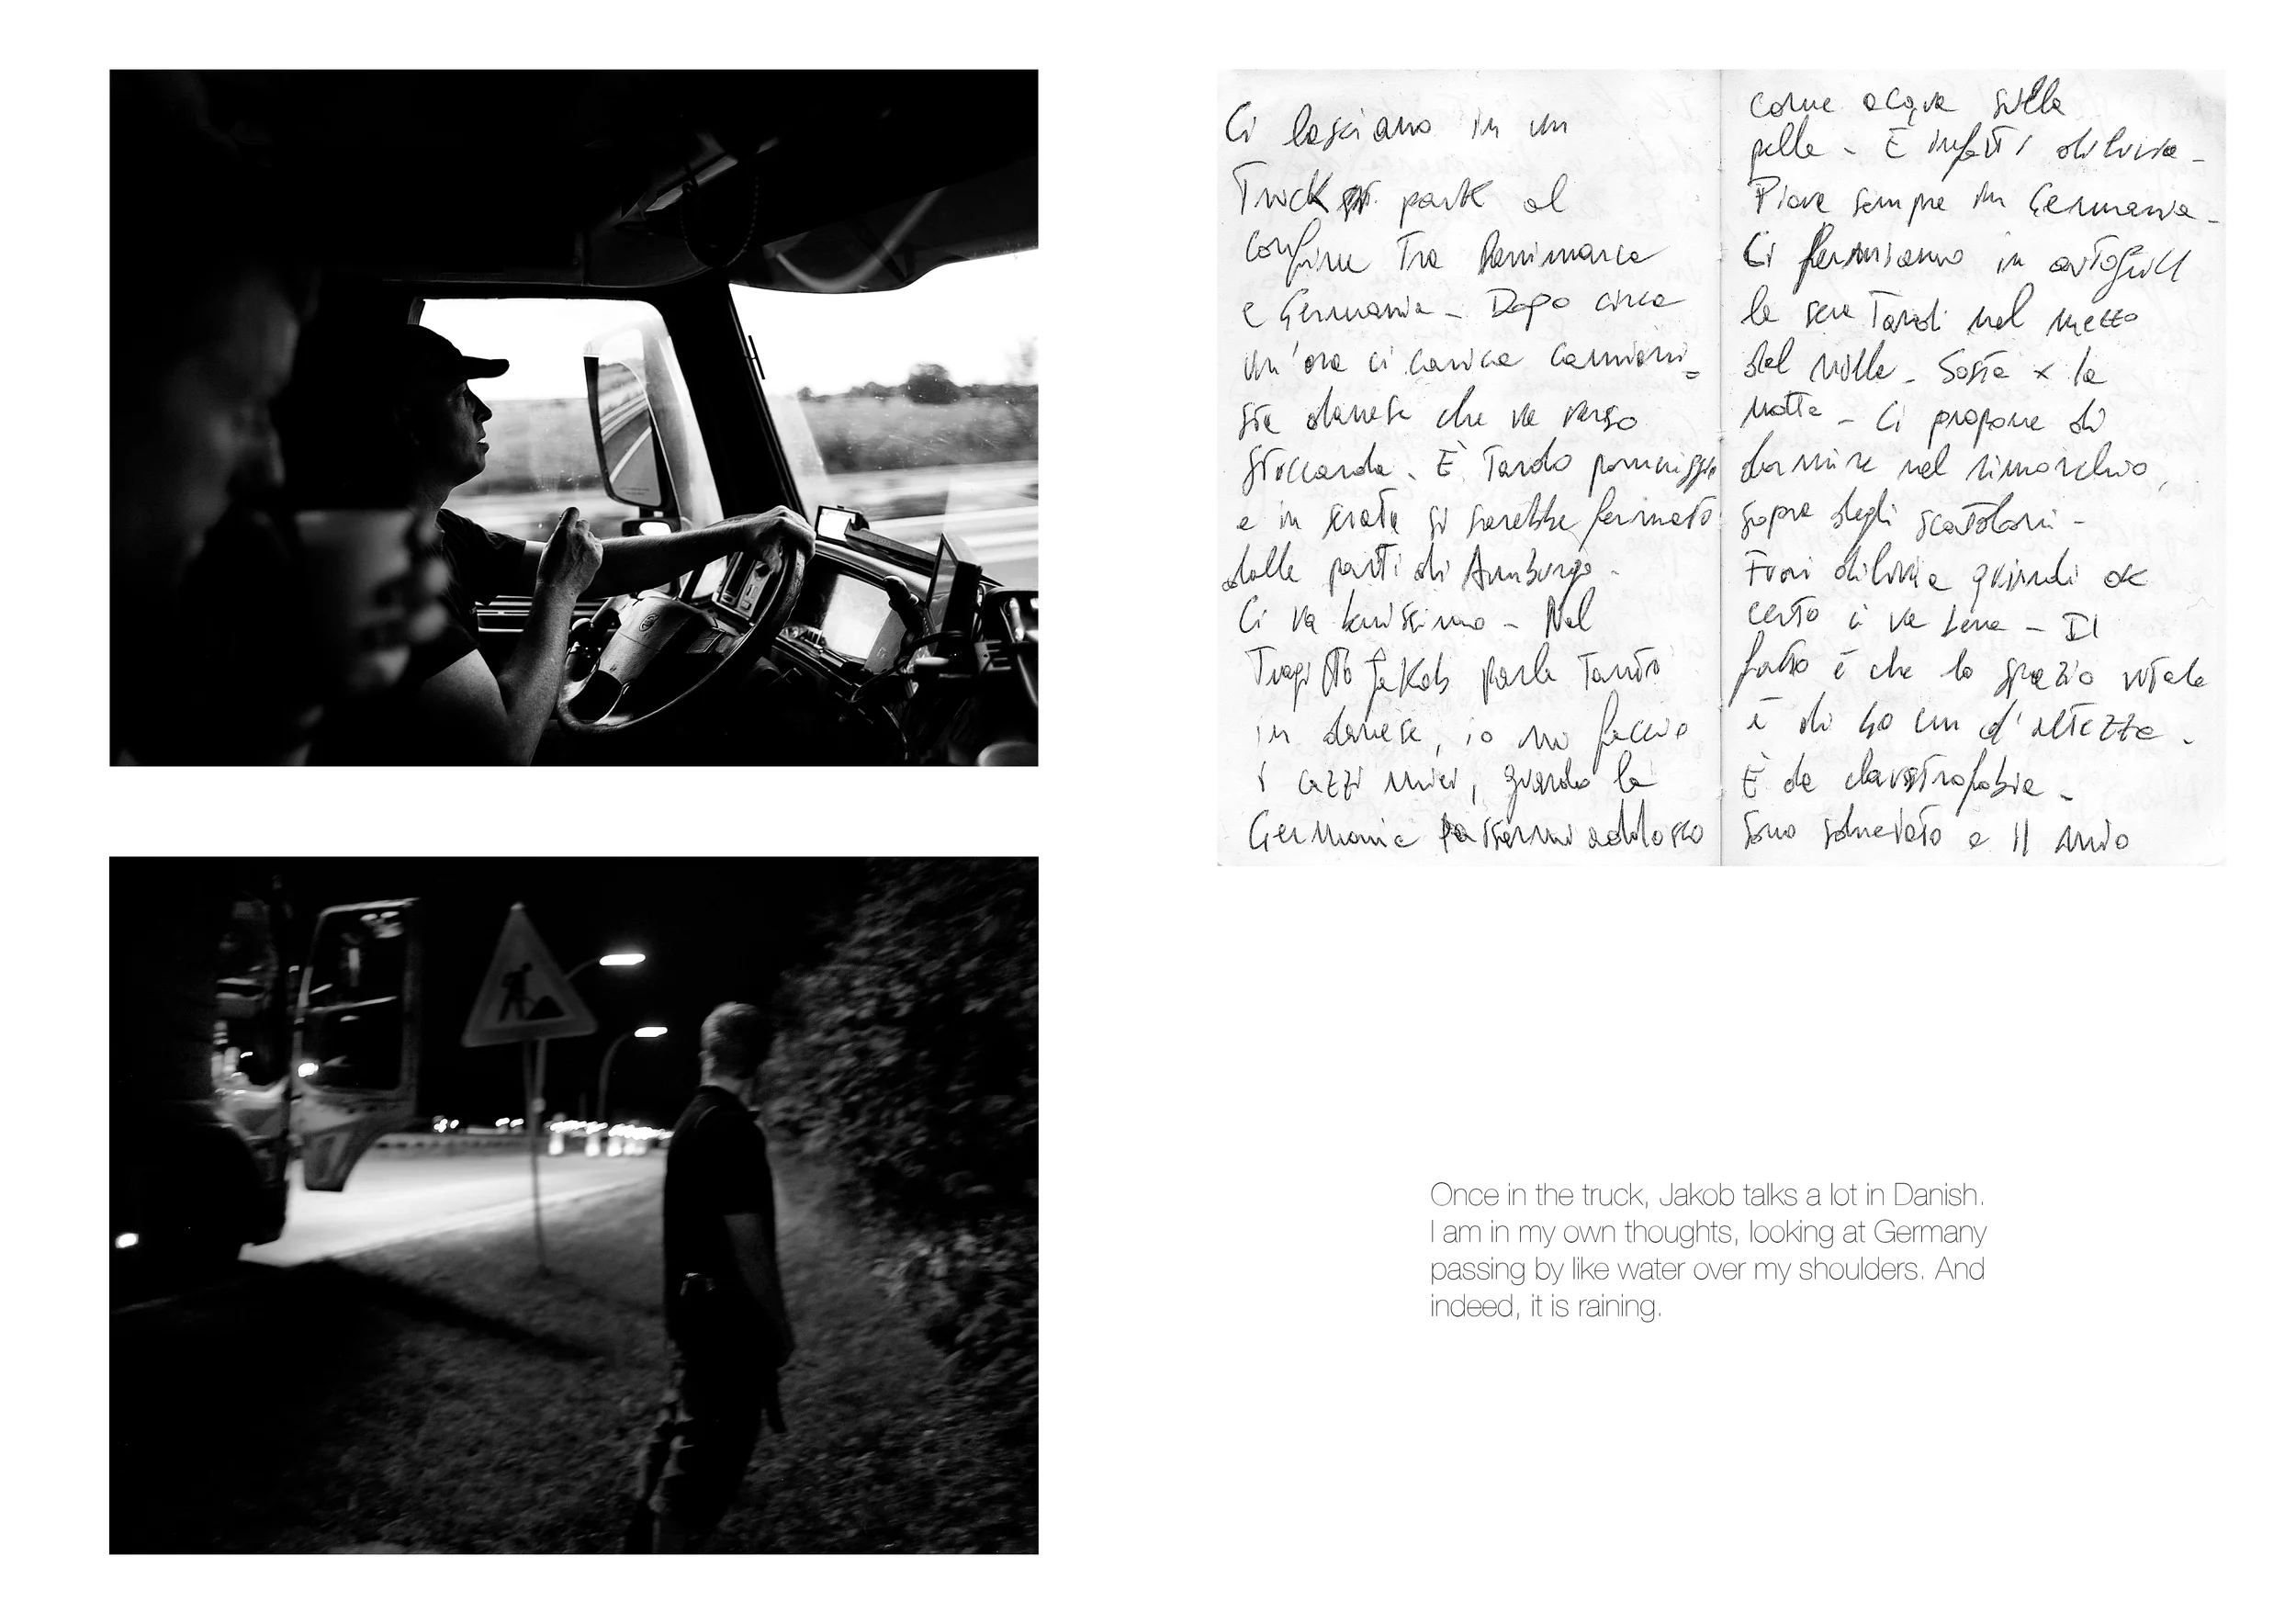 Ci lasciano in un
Truck park al
confine tra Danimarca
e Germania - Dopo circa
un'ora ci carica camioni=
sta danese che va verso
Stoccarda. È tardo pomeriggio
e in serata si sarebbe fermato
dalle parti di Amburgo.
Ci va benissimo - Nel
tragitto Jakob parla tanto
in danese, io mi faccio
i cazzi miei, guardo la
Germania passarmi addosso
come acqua sulla
pelle - E infatti diluvia -
Piove sempre in Germania -
Ci fermiamo in autogrill
la sera tardi nel mezzo
del nulla - Sosta x la
notte - Ci propone di
dormire nel rimorchio,
sopra degli scatoloni -
Fuori diluvia quindi ok
certo ci va bene - Il
fatto è che lo spazio vitale
è di 40 cm d'altezza.
È da claustrofobia -
Sono sdraiato e il mio
Once in the truck, Jakob talks a lot in Danish.
I am in my own thoughts, looking at Germany
passing by like water over my shoulders. And
indeed, it is raining.